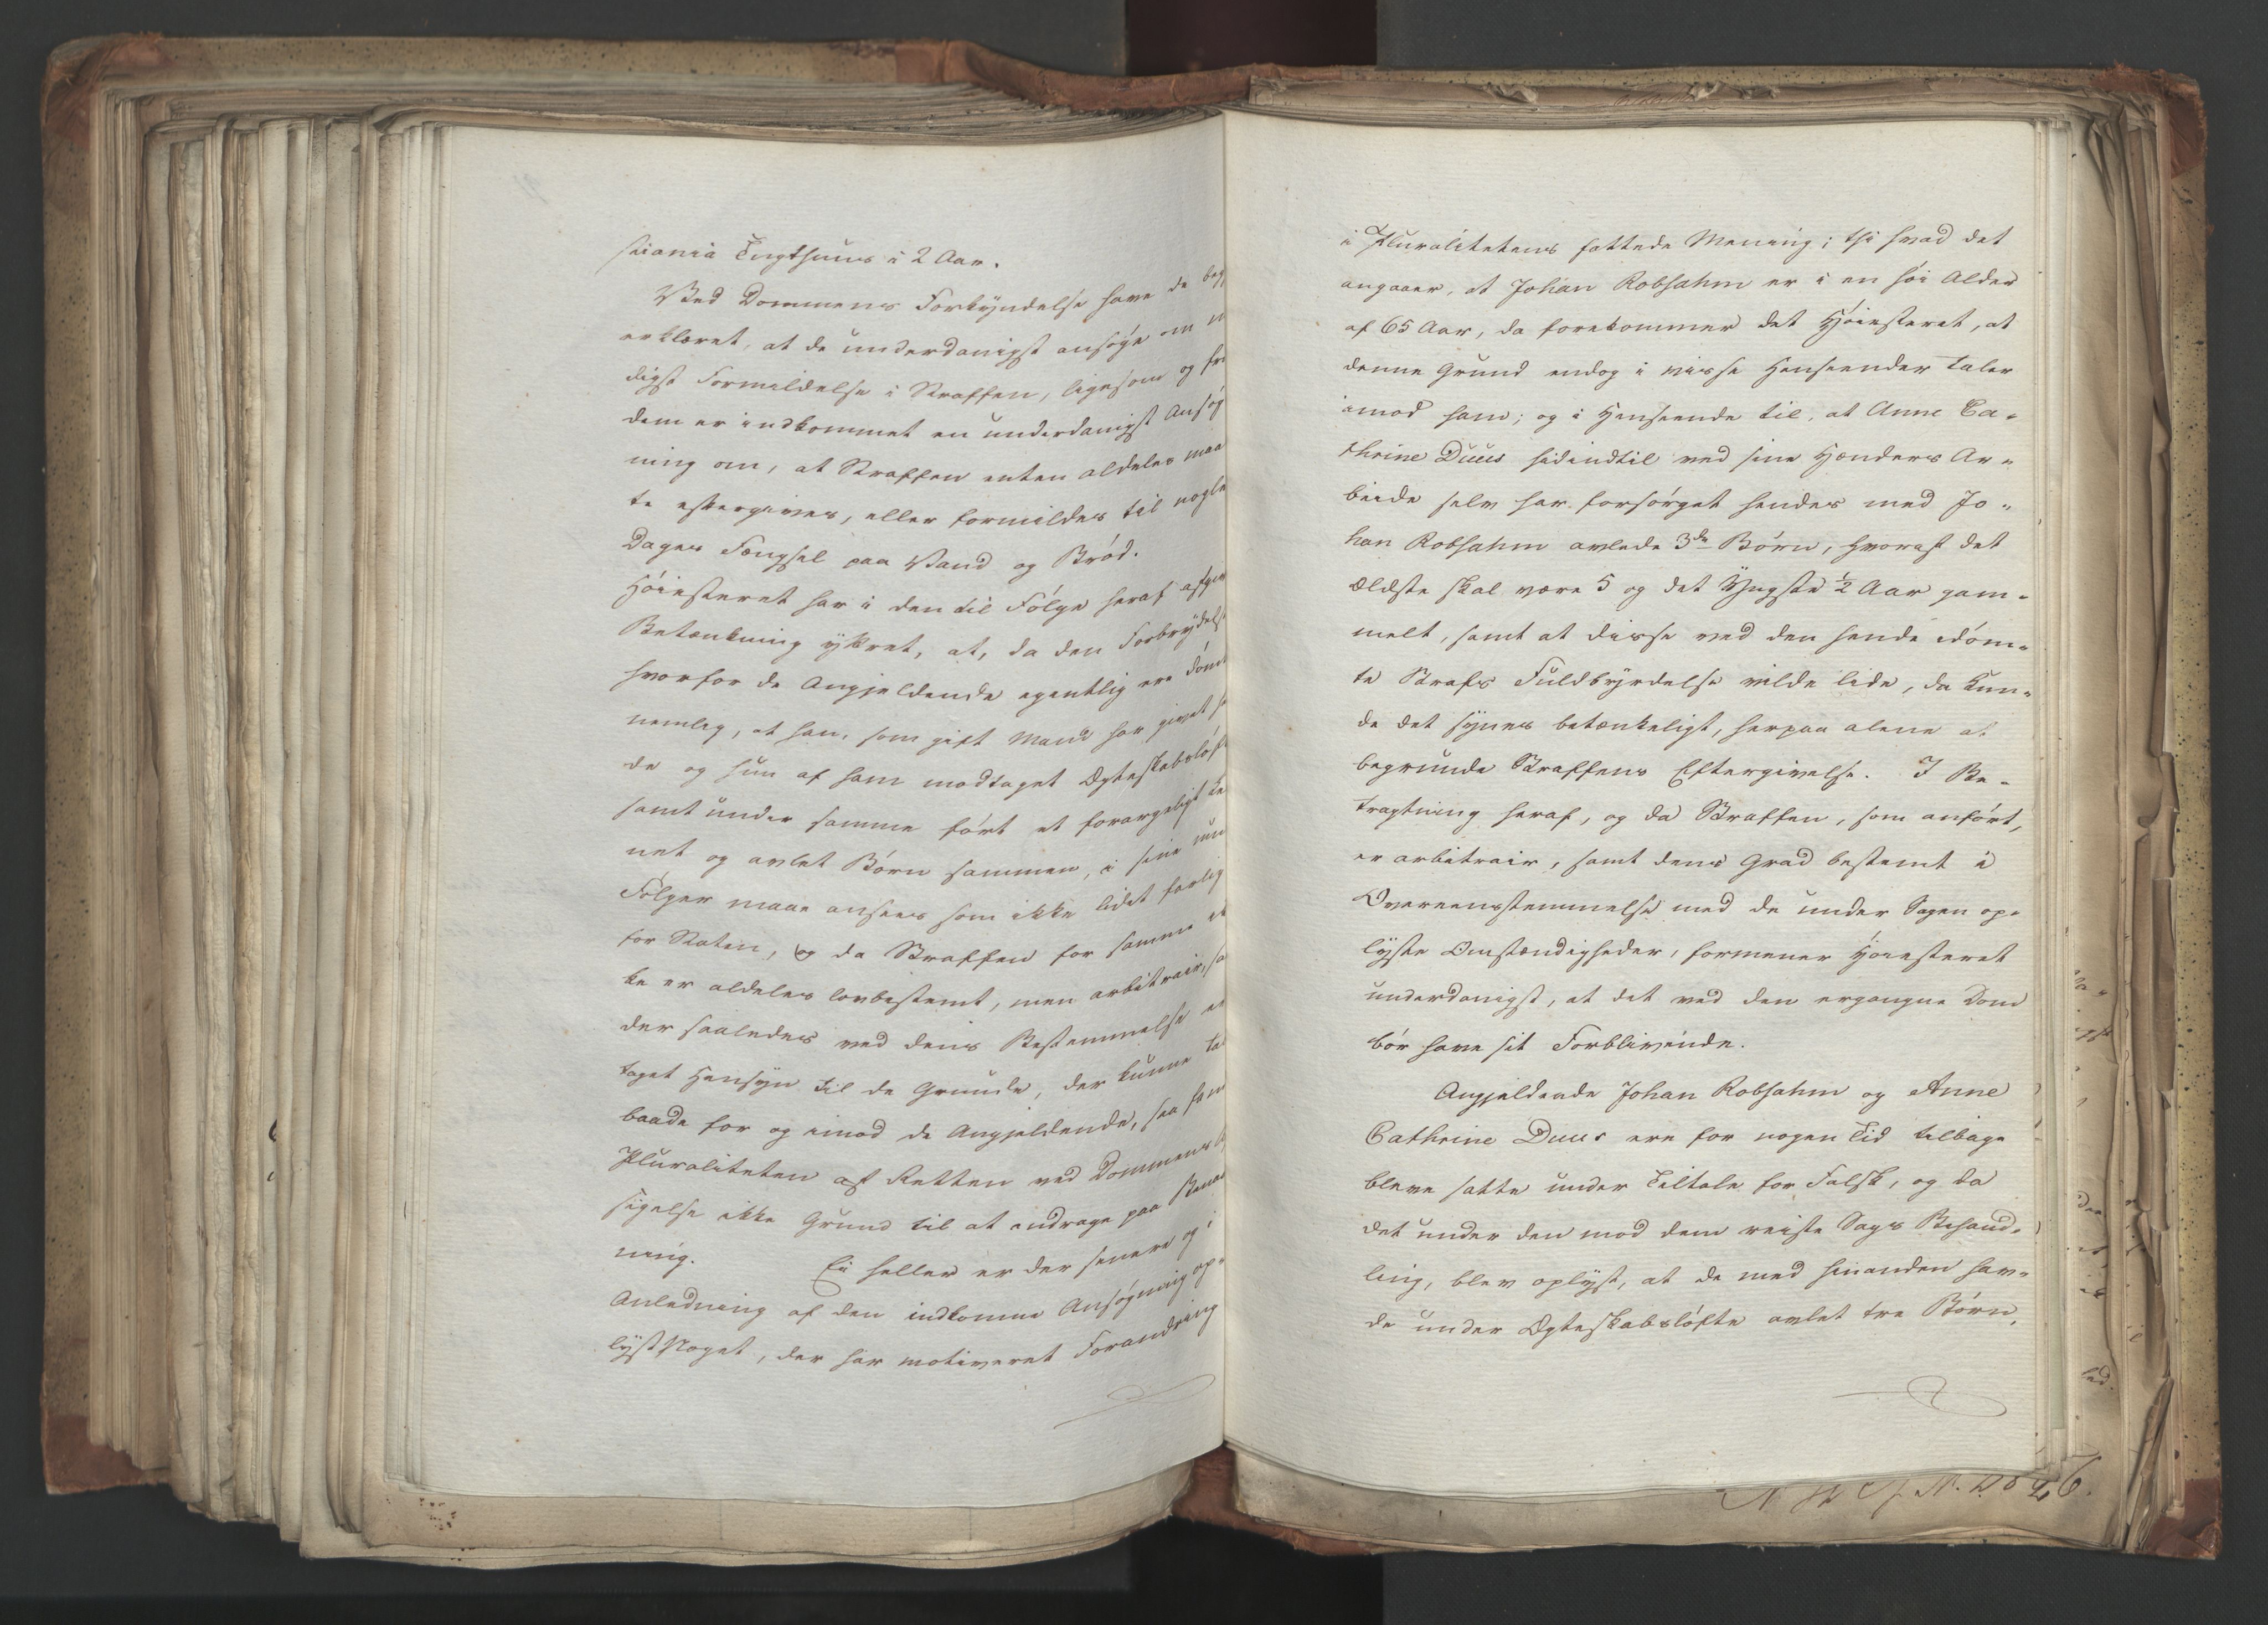 stiania Tugthuus i 2 Aar.
Ved Dommens Forkyndelse have de beg
erklæret, at de underdanigst ansøge om n
digst Formildelse i Straffen, ligesom og fra
dem er indkommet en underdanigst Ansøg
ning om, at Straffen enten aldeles maa
te eftergives, eller formildes til nogle
Dages Fængsel paa Vand og Brød.
Høiesteret har i den til Følge heraf afgivn
Betænkning yttret, at, da den Forbrydelse
hvorfor de Angjeldende egentlig ere dømt
nemlig, at han, som gift Mand har givet he
de og hun af ham modtaget Ægteskabsløft
samt under samme ført et forargeligt Le
net og avlet Børn sammen, i sine
Følger maae ansees som ikke lidet farlig
for Staten, og da Straffen for samme ik
ke er aldeles lovbestemt, men arbitrair, saa
der saaledes ved dens Bestemmelse er
taget Hensyn til de Grunde, der kunne tal
baade for og imod de Angjeldende, saa fan
Pluraliteten af Retten ved Dommens A
sigelse ikke Grund til at andrage paa Benaad
ning. Ei heller er der senere og i
Anledning af den indkomne Ansøgning op-
lyst Noget, der har motiveret Forandring
i Pluralitetens fattede Mening; thi hvad det
angaaer, at Johan Robsahm er i en høi Alder
af 65 Aar, da forekommer det Høiesteret, at
denne Grund endog i visse Henseender taler
imod ham; og i Henseende til, at Anne Ca-
thrine Duus hidindtil ved sine Hænders Ar-
beide selv har forsørget hendes med Jo-
han Robsahm avlede 3de Børn, hvoraf det
Ældste skal være 5 og det Yngste ½ Aar gam-
melt, samt at disse ved den hende idøm-
te Strafs Fuldbyrdelse vilde lide, da kun-
de det synes betænkeligt, herpaa alene at
begrunde Straffens Eftergivelse. I Be-
tragtning heraf, og da Straffen, som anført,
er arbitrair, samt dens Grad bestemt i
Overeensstemmelse med de under Sagen op-
lyste Omstændigheder, formener Høiesteret
underdanigst, at det ved den ergangne Dom
bør have sit Forblivende.
Angjeldende Johan Robsahm og Anne
Cathrine Duus ere for nogen Tid tilbage
bleve satte under Tiltale for Falsk, og da
det under den mod dem reiste Sags Behand-
ling, blev oplyst, at de med hinanden hav-
de under Ægteskabsløfte avlet tre Børn,